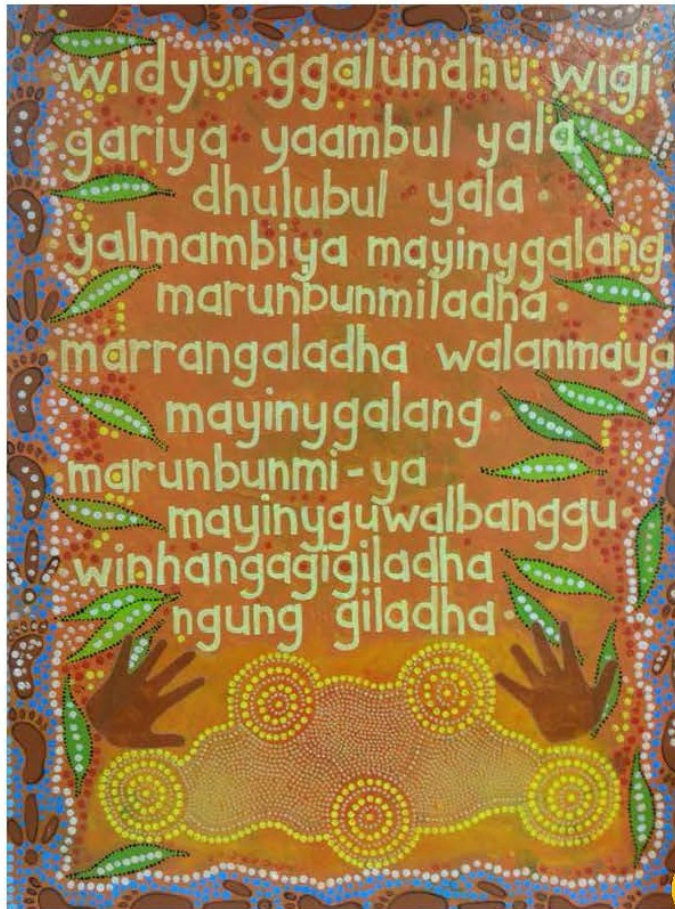 widyunggalundhu wigi
gariya yaambul yala
dhulubul yala
yalmambiya mayinygalang
marunbunmiladha
marrangaladha walanmaya
mayinygalang
marunbunmi-ya
mayinyguwalbanggu
winhangagigiladha
ngung giladha